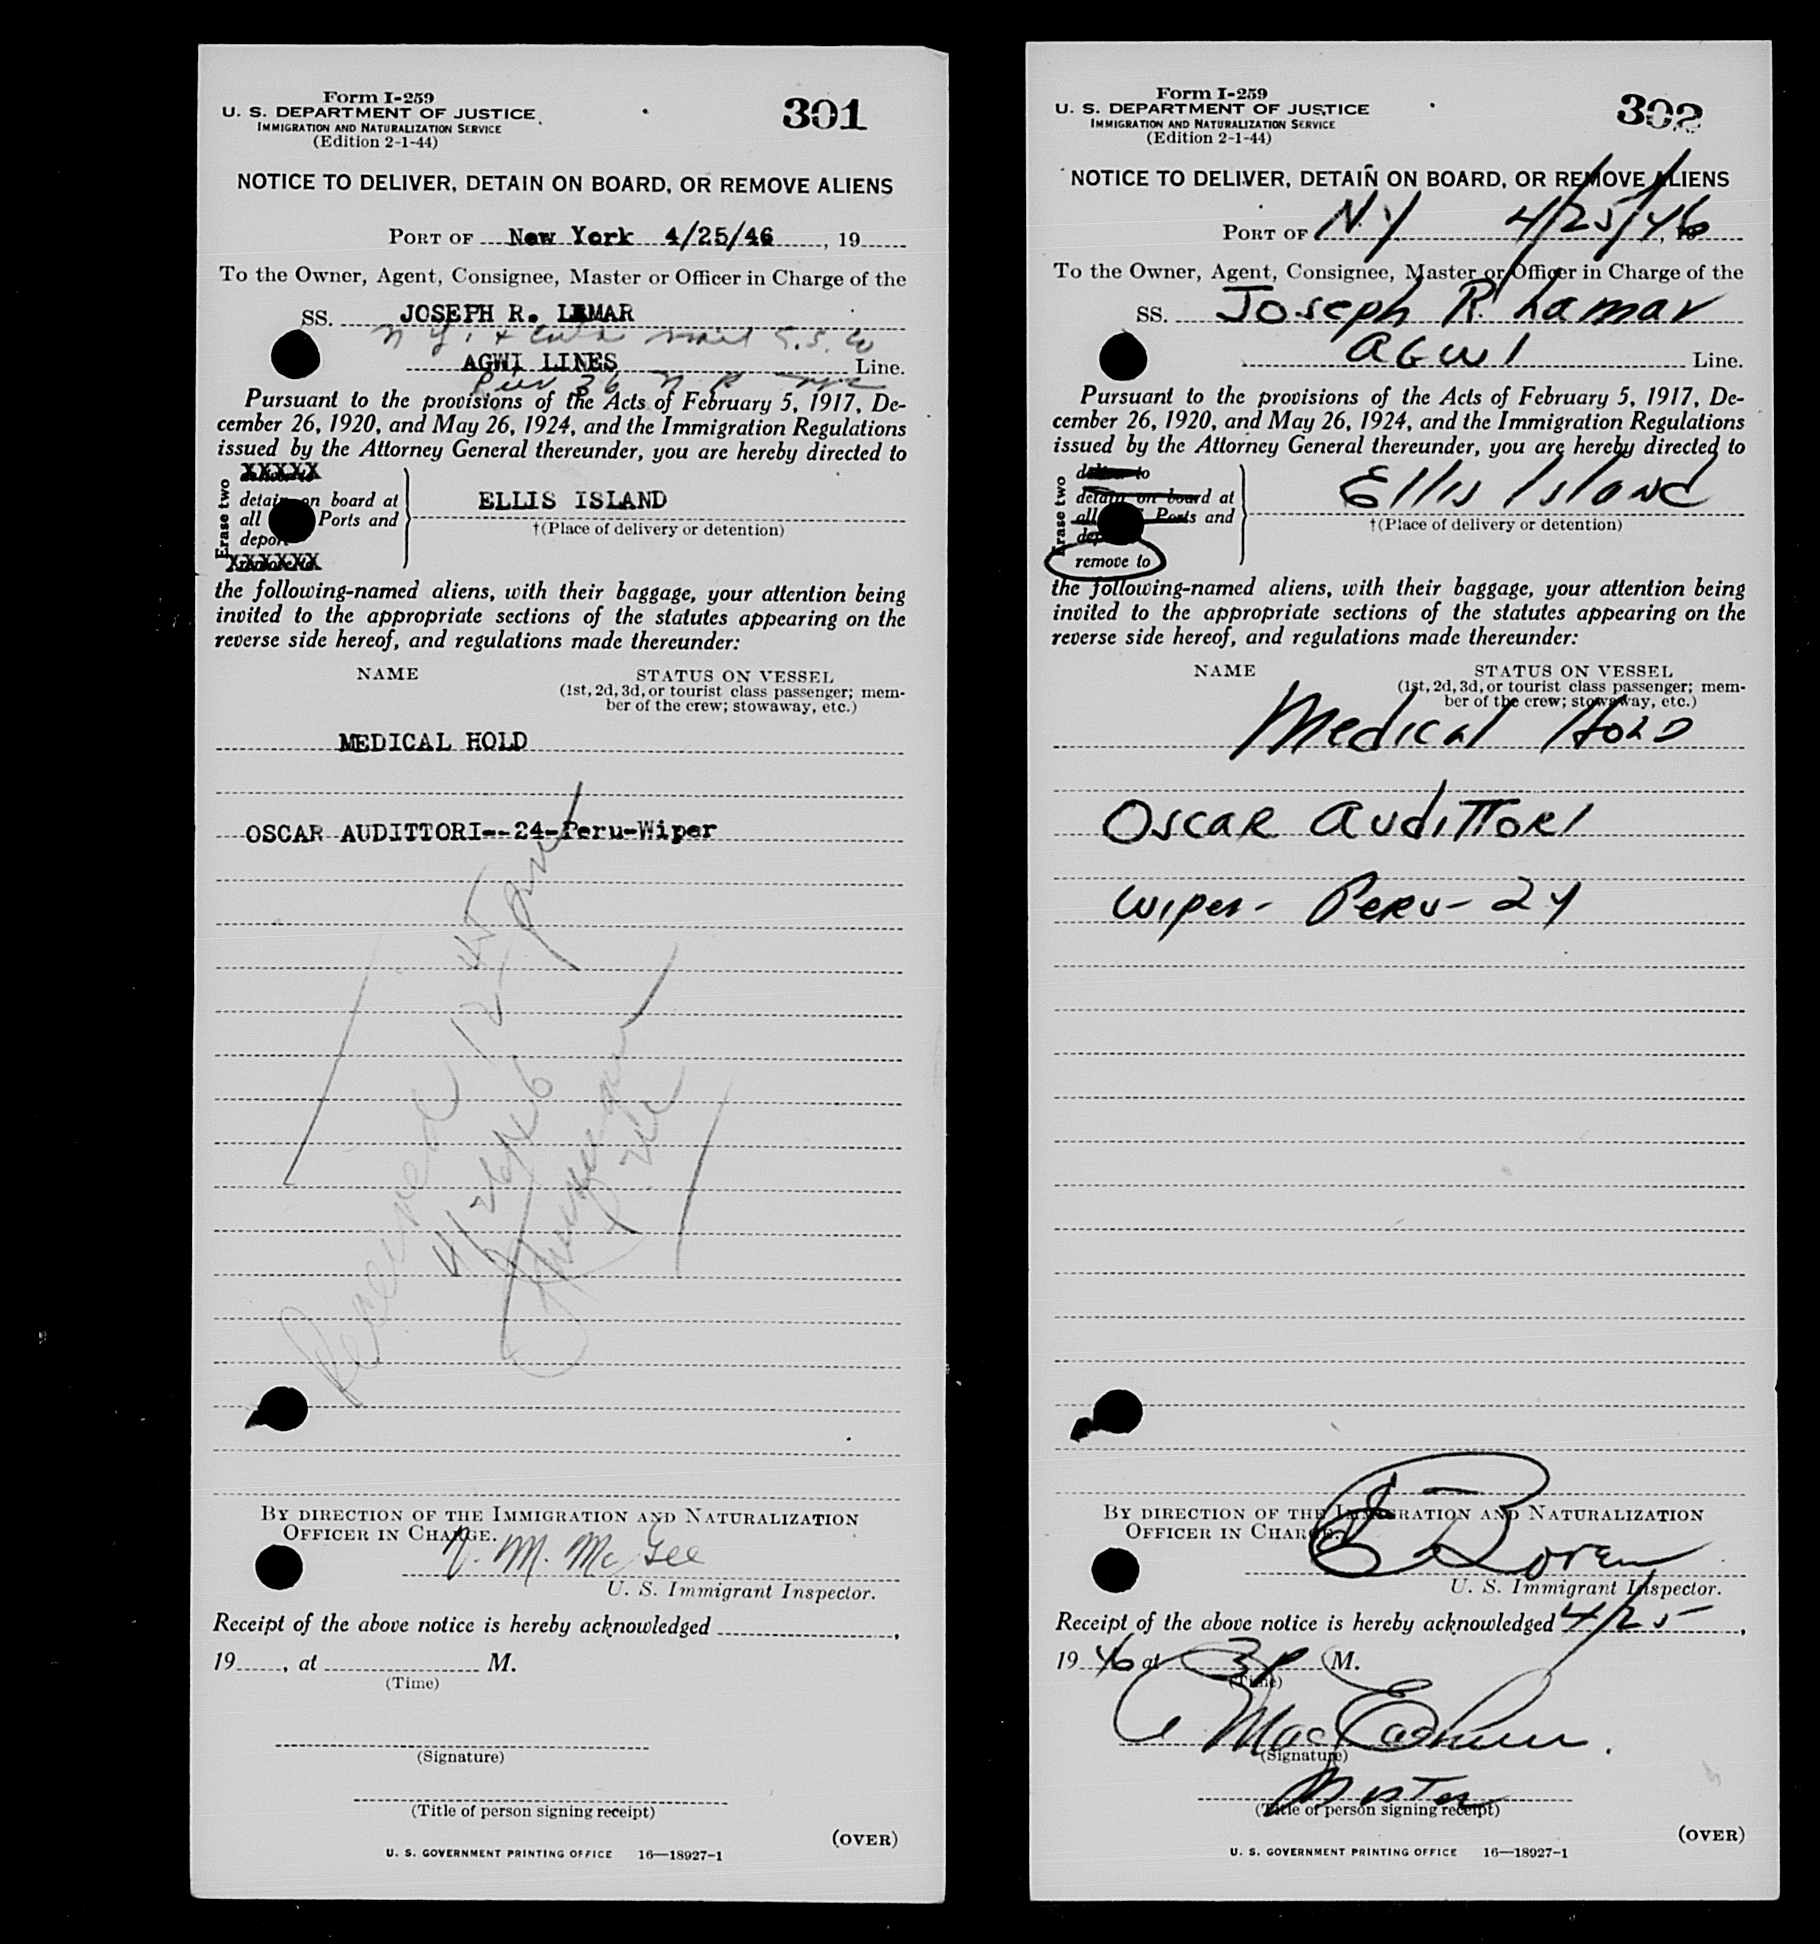 Form I-259
U. S. DEPARTMENT OF JUSTICE
IMMIGRATION AND NATURALIZATION SERVICE
(Edition 2-1-44)
301
NOTICE TO DELIVER, DETAIN ON BOARD, OR REMOVE ALIENS
PORT OF New York 4/25/46, 19
To the Owner, Agent, Consignee, Master or Officer in Charge of the
SS. JOSEPH R. LAMAR
N. Y. & Cuba Mail S.S. Co
AGWI LINES Line.
Pier 36 N. R. NYC
Pursuant to the provisions of the Acts of February 5, 1917, De-
cember 26, 1920, and May 26, 1924, and the Immigration Regulations
issued by the Attorney General thereunder, you are hereby directed to
Erase two
XXXXX
detain on board at
all Ports and
deport
XXXXXX
ELLIS ISLAND
†(Place of delivery or detention)
the following-named aliens, with their baggage, your attention being
invited to the appropriate sections of the statutes appearing on the
reverse side hereof, and regulations made thereunder:
NAME
STATUS ON VESSEL
(1st, 2d, 3d, or tourist class passenger; mem-
ber of the crew; stowaway, etc.)
MEDICAL HOLD
OSCAR AUDITTORI--24-Peru-Wiper
Received 12 45 pm
4/26/46
BY DIRECTION OF THE IMMIGRATION AND NATURALIZATION
OFFICER IN CHARGE.
N. M. McGee
U. S. Immigrant Inspector.
Receipt of the above notice is hereby acknowledged ,
19 , at M.
(Time)
(Signature)
(Title of person signing receipt)
(OVER)
U. S. GOVERNMENT PRINTING OFFICE 16—18927-1
Form I-259
U. S. DEPARTMENT OF JUSTICE
IMMIGRATION AND NATURALIZATION SERVICE
(Edition 2-1-44)
302
NOTICE TO DELIVER, DETAIN ON BOARD, OR REMOVE ALIENS
PORT OF N.Y 4/25/46, 19
To the Owner, Agent, Consignee, Master or Officer in Charge of the
SS. Joseph R. Lamar
AGWI Line.
Pursuant to the provisions of the Acts of February 5, 1917, De-
cember 26, 1920, and May 26, 1924, and the Immigration Regulations
issued by the Attorney General thereunder, you are hereby directed to
Erase two
deliver to
detain on board at
all Ports and
deport
remove to
Ellis Island
†(Place of delivery or detention)
the following-named aliens, with their baggage, your attention being
invited to the appropriate sections of the statutes appearing on the
reverse side hereof, and regulations made thereunder:
NAME
STATUS ON VESSEL
(1st, 2d, 3d, or tourist class passenger; mem-
ber of the crew; stowaway, etc.)
Medical Hold
Oscar Audittori
Wiper- Peru- 24
BY DIRECTION OF THE IMMIGRATION AND NATURALIZATION
OFFICER IN CHARGE.
U. S. Immigrant Inspector.
Receipt of the above notice is hereby acknowledged 4/25,
19 46 at 3 P M.
(Time)
(Signature)
Master
(Title of person signing receipt)
(OVER)
U. S. GOVERNMENT PRINTING OFFICE 16—18927-1